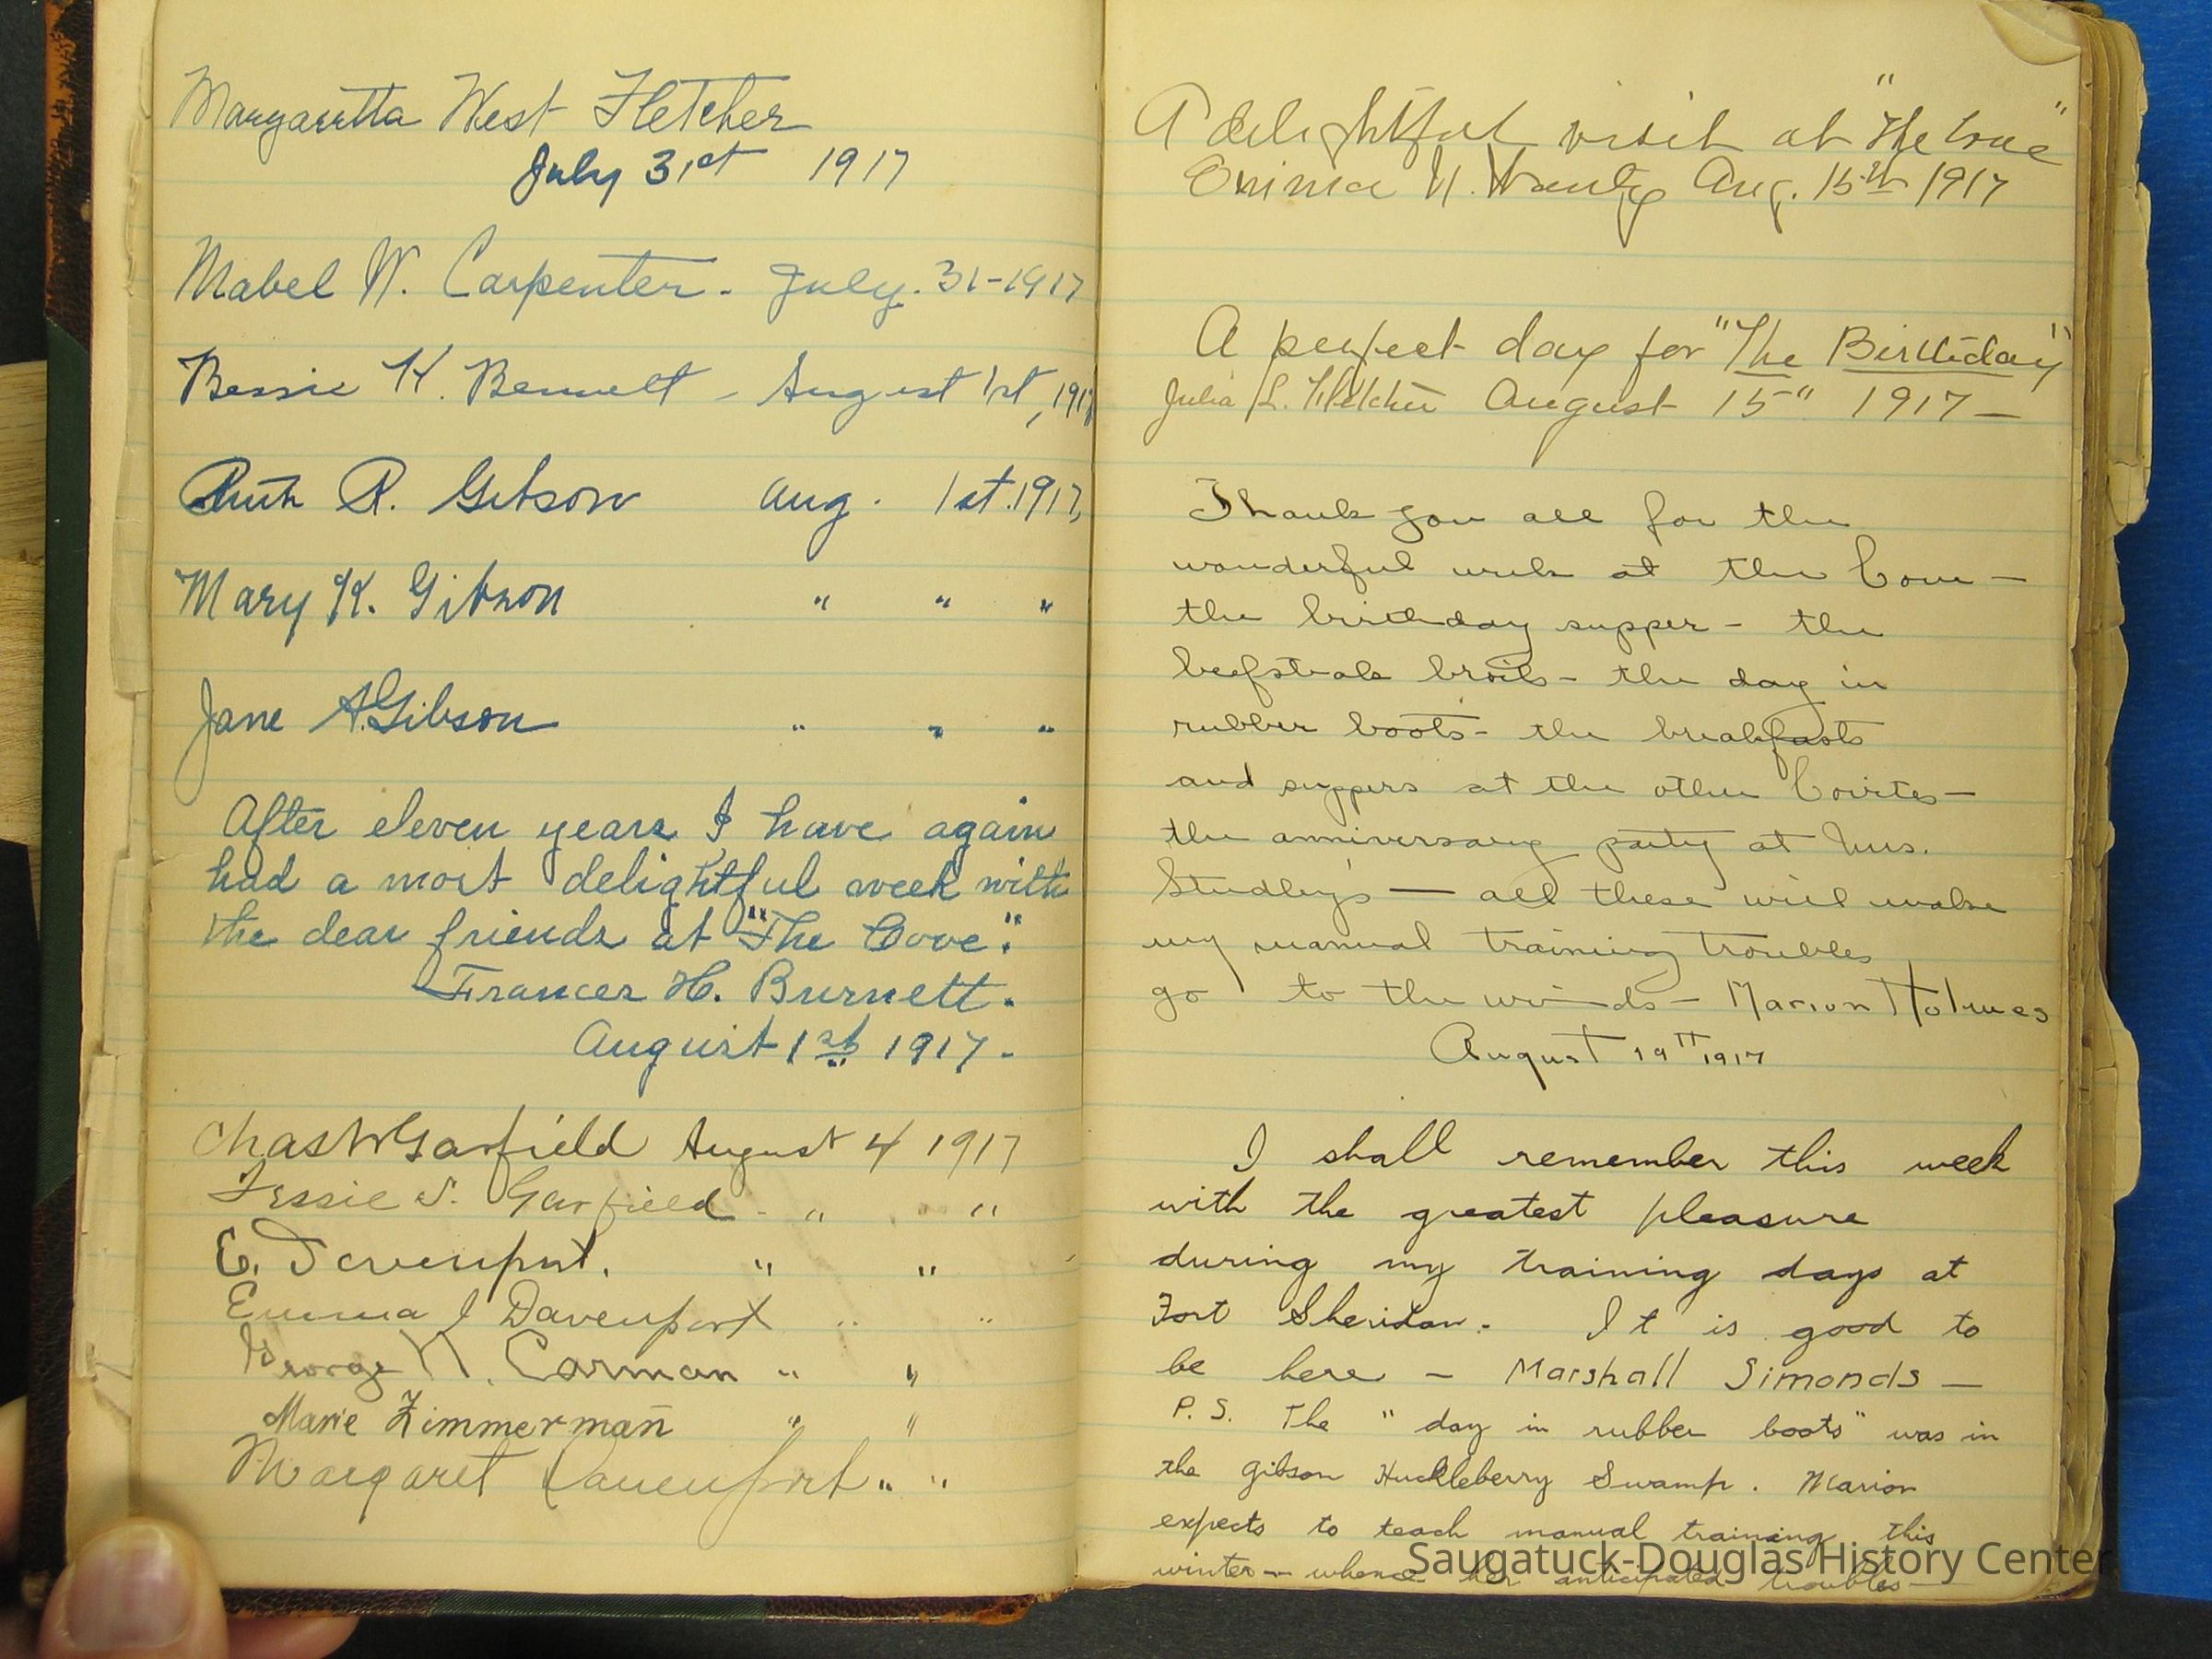 Margaretta West Fletcher
July 31st 1917
Mabel W. Carpenter. July. 31-1917
Bessie K. Bennett - August 1st, 1917
Ruth R. Gibson Aug. 1st. 1917,
Mary K. Gibson " " "
Jane A. Gibson " " "
After eleven years I have again
had a most delightful week with
the dear friends at "The Cove".
Frances H. Burnett.
August 1st 1917-
Chas W Garfield August 4 1917
Jessie S. Garfield - " "
E. Davenport. " "
Emma J Davenport " "
George N. Carman " "
Marie Zimmerman " "
Margaret Davenport " "
A delightful visit at "The Cove"
Emma N. Aug. 15th 1917
A perfect day for "The Birthday"
Julia L. Fletcher August 15" 1917-
Thank you all for the
wonderful week at the Cove -
the birthday supper - the
beefsteak broils - the day in
rubber boots - the breakfasts
and suppers at the other Coveites -
the anniversary party at Mrs.
Studley's - all these will make
my manual training troubles
go to the winds - Marion Holmes
August 19TH 1917
I shall remember this week
with the greatest pleasure
during my training days at
Fort Sheridan. It is good to
be here - Marshall Simonds -
P.S. The "day in rubber boots" was in
the Gibson Huckleberry Swamp. Marion
expects to teach manual training this
winter - whence her anticipated troubles -
Saugatuck-Douglas History Center